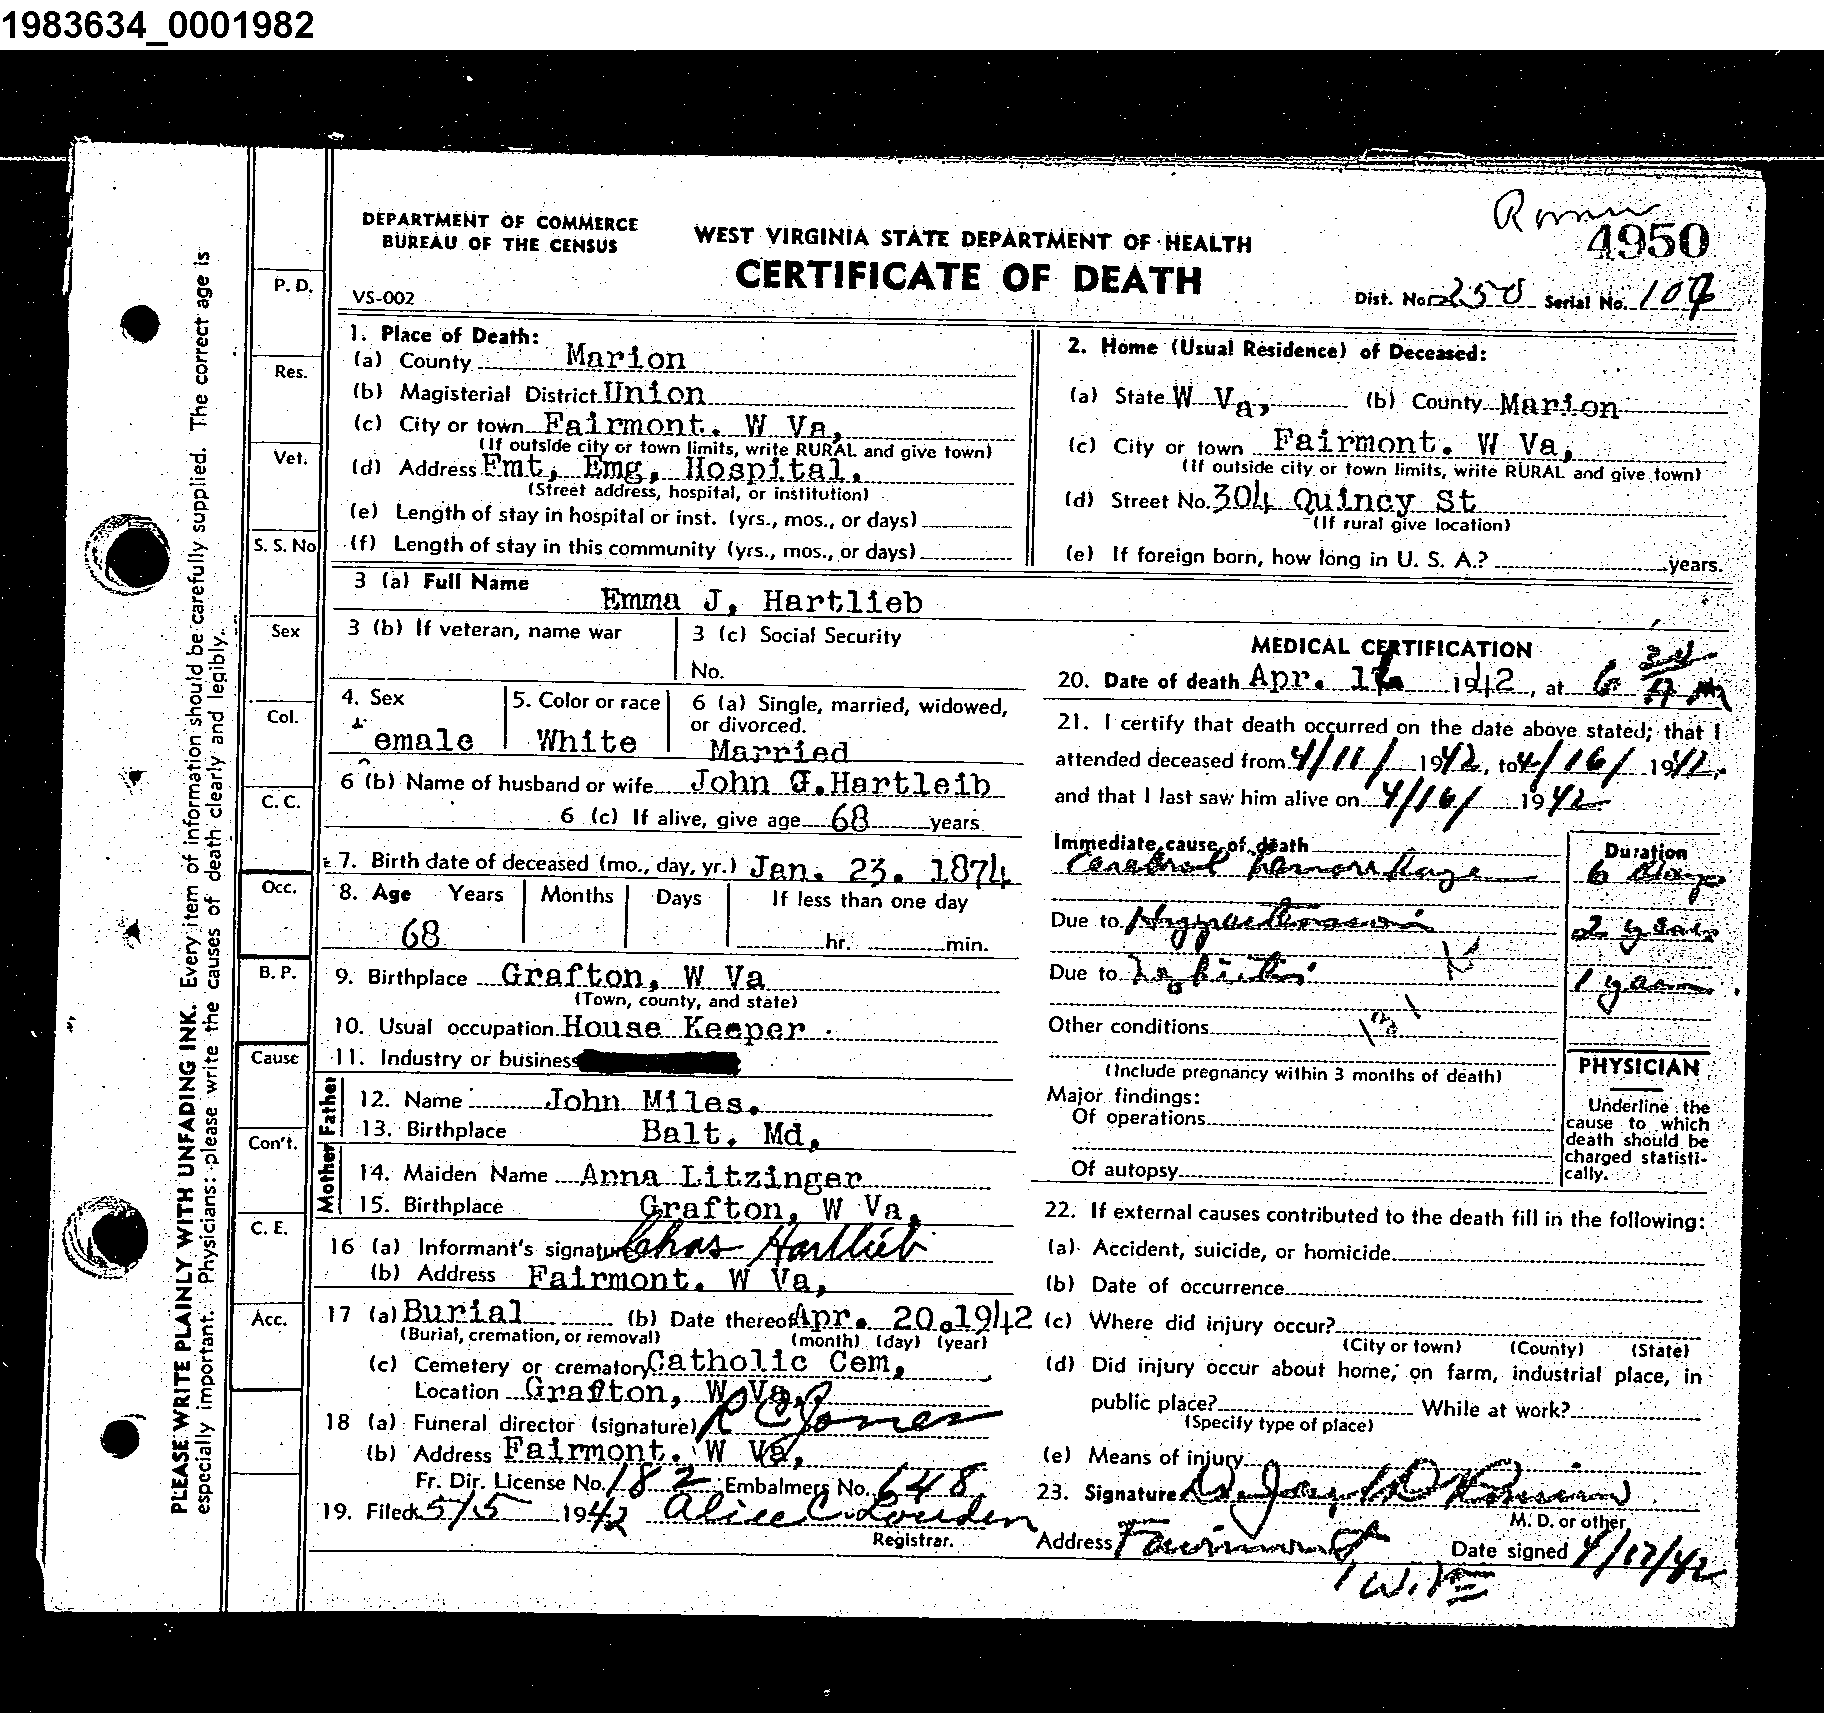 1983634_0001982
DEPARTMENT OF COMMERCE
BUREAU OF THE CENSUS
VS-002
WEST VIRGINIA STATE DEPARTMENT OF HEALTH
CERTIFICATE OF DEATH
4950
Dist. No. 250 Serial No. 107
PLEASE WRITE PLAINLY WITH UNFADING INK. Every item of information should be carefully supplied. The correct age is
especially important. Physicians: please write the causes of death clearly and legibly.
P. D.
Res.
Vet.
S. S. No
Sex
Col.
C. C.
Occ.
B. P.
Cause
Con't.
C. E.
Acc.
1. Place of Death:
(a) County Marion
(b) Magisterial District Union
(c) City or town Fairmont. W Va,
(If outside city or town limits, write RURAL and give town)
(d) Address Fmt, Emg, Hospital.
(Street address, hospital, or institution)
(e) Length of stay in hospital or inst. (yrs., mos., or days)
(f) Length of stay in this community (yrs., mos., or days)
2. Home (Usual Residence) of Deceased:
(a) State W Va, (b) County Marion
(c) City or town Fairmont. W Va,
(If outside city or town limits, write RURAL and give town)
(d) Street No. 304 Quincy St
(If rural give location)
(e) If foreign born, how long in U. S. A.? years.
3 (a) Full Name Emma J, Hartlieb
3 (b) If veteran, name war
3 (c) Social Security
No.
4. Sex
emale
5. Color or race
White
6 (a) Single, married, widowed,
or divorced.
Married
6 (b) Name of husband or wife John G.Hartleib
6 (c) If alive, give age 68 years
7. Birth date of deceased (mo., day, yr.) Jan. 23. 1874
8. Age Years Months Days If less than one day
68 hr. min.
9. Birthplace Grafton, W Va
(Town, county, and state)
10. Usual occupation House Keeper
11. Industry or business
Father
12. Name John Miles.
13. Birthplace Balt, Md,
Mother
14. Maiden Name Anna Litzinger
15. Birthplace Grafton, W Va,
16 (a) Informant's signature Chas Hartlieb
(b) Address Fairmont. W Va,
17 (a) Burial (b) Date thereof Apr. 20.1942
(Burial, cremation, or removal) (month) (day) (year)
(c) Cemetery or crematory Catholic Cem,
Location Grafton, W Va,
18 (a) Funeral director (signature) R C Jones
(b) Address Fairmont. W Va,
Fr. Dir. License No. 182 Embalmers No. 648
19. Filed 5/5 1942 Alice C. Louden
Registrar.
MEDICAL CERTIFICATION
20. Date of death Apr. 1942, at 6 A M
21. I certify that death occurred on the date above stated; that I
attended deceased from 4/11/ 1942, to 4/16/ 1942,
and that I last saw him alive on 4/16/ 1942
Immediate cause of death Duration
Cerebral hemorrhage 6 days
Due to Hypertension 2 years
Due to 1 year
Other conditions
(Include pregnancy within 3 months of death)
Major findings:
Of operations
Of autopsy
PHYSICIAN
Underline the
cause to which
death should be
charged statisti-
cally.
22. If external causes contributed to the death fill in the following:
(a) Accident, suicide, or homicide
(b) Date of occurrence
(c) Where did injury occur?
(City or town) (County) (State)
(d) Did injury occur about home, on farm, industrial place, in
public place? While at work?
(Specify type of place)
(e) Means of injury
23. Signature
M. D. or other
Address Fairmont Date signed 4/17/42
W. Va